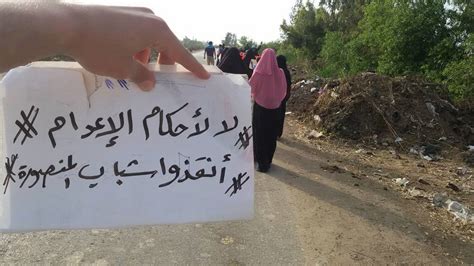 # لا لأحكام الإعدام #
# أنقذوا شباب المنصورة #